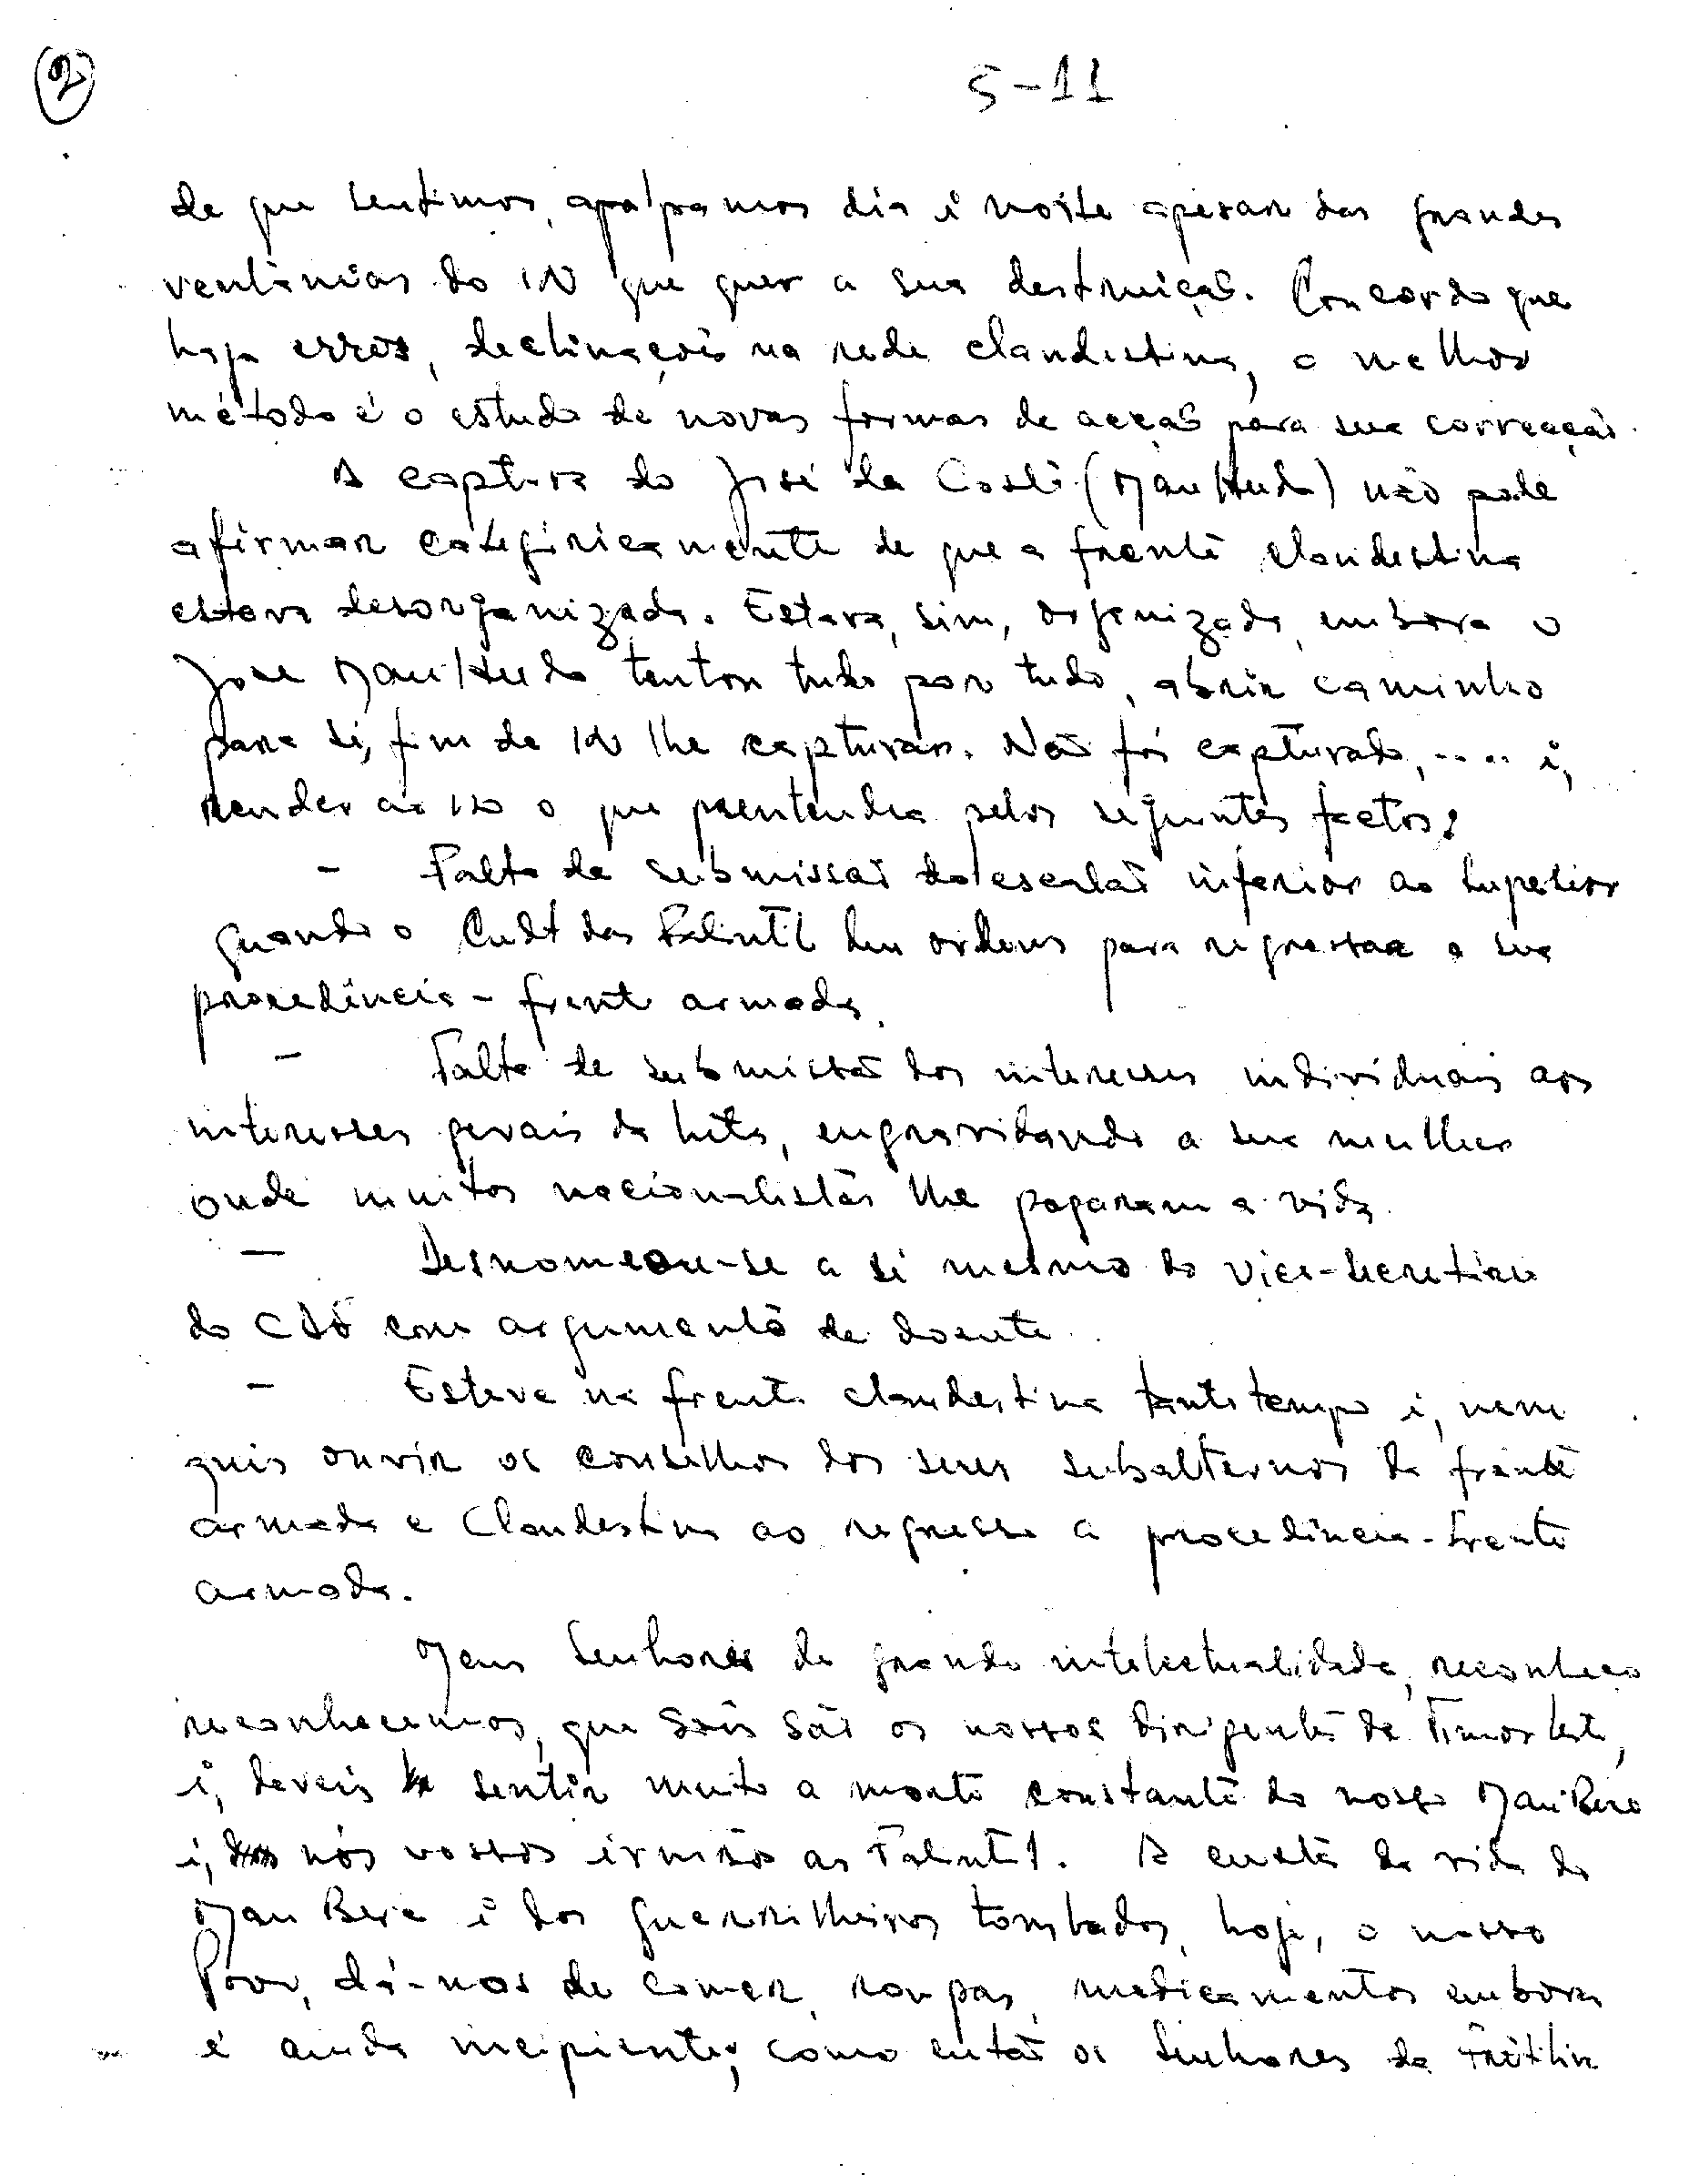 2
5-11
de que sentimos, apalpamos dia i noite apesar das grandes
ventanias do IN que quer a sua destruição. Concordo que
haja erros, declinações na rede clandestina, o melhor
método é o estudo de novas formas de acção para sua correcção.
A captura do José da Costa (Mau Hudo) não pode
afirmar categóricamente de que a frente clandestina
estava desorganizada. Estava, sim, organizada, embora o
José Mau Hudo tentou tudo por tudo, abrir caminho
para si, fim de IN lhe capturar. Não foi capturado, .... i,
render ao IN o que pretendia pelos seguintes factos:
- Falta de submissão do escalão inferior ao superior
quando o Cmdt das Falintil deu ordens para regressar a sua
procedência - frente armada.
- Falta de submissão dos interesses individuais aos
interesses gerais da luta, engravidando a sua mulher
onde muitos nacionalistas lhe pagaram a vida.
- Desnomeou-se a si mesmo do vice-secretário
do com argumento de doente.
- Esteve na frente clandestina tanto tempo i, nem
quis ouvir os conselhos dos seus subalternos da frente
armada e Clandestina ao regresso a procedência - frente
armada.
Meus Senhores de grande intelectualidade, reconheço
reconhecemos, que Sois são os nossos dirigentes de Timor Leste,
i, deveis sentir muito a morte constante do nosso Mau Bere
i, nós vossos irmãos as Falintil. A custa da vida do
Mau Bere i dos guerrilheiros tombados, hoje, o nosso
Povo, dá-nos de comer, roupas, medicamentos embora
é ainda incipiente; como então os Senhores da Fretilin